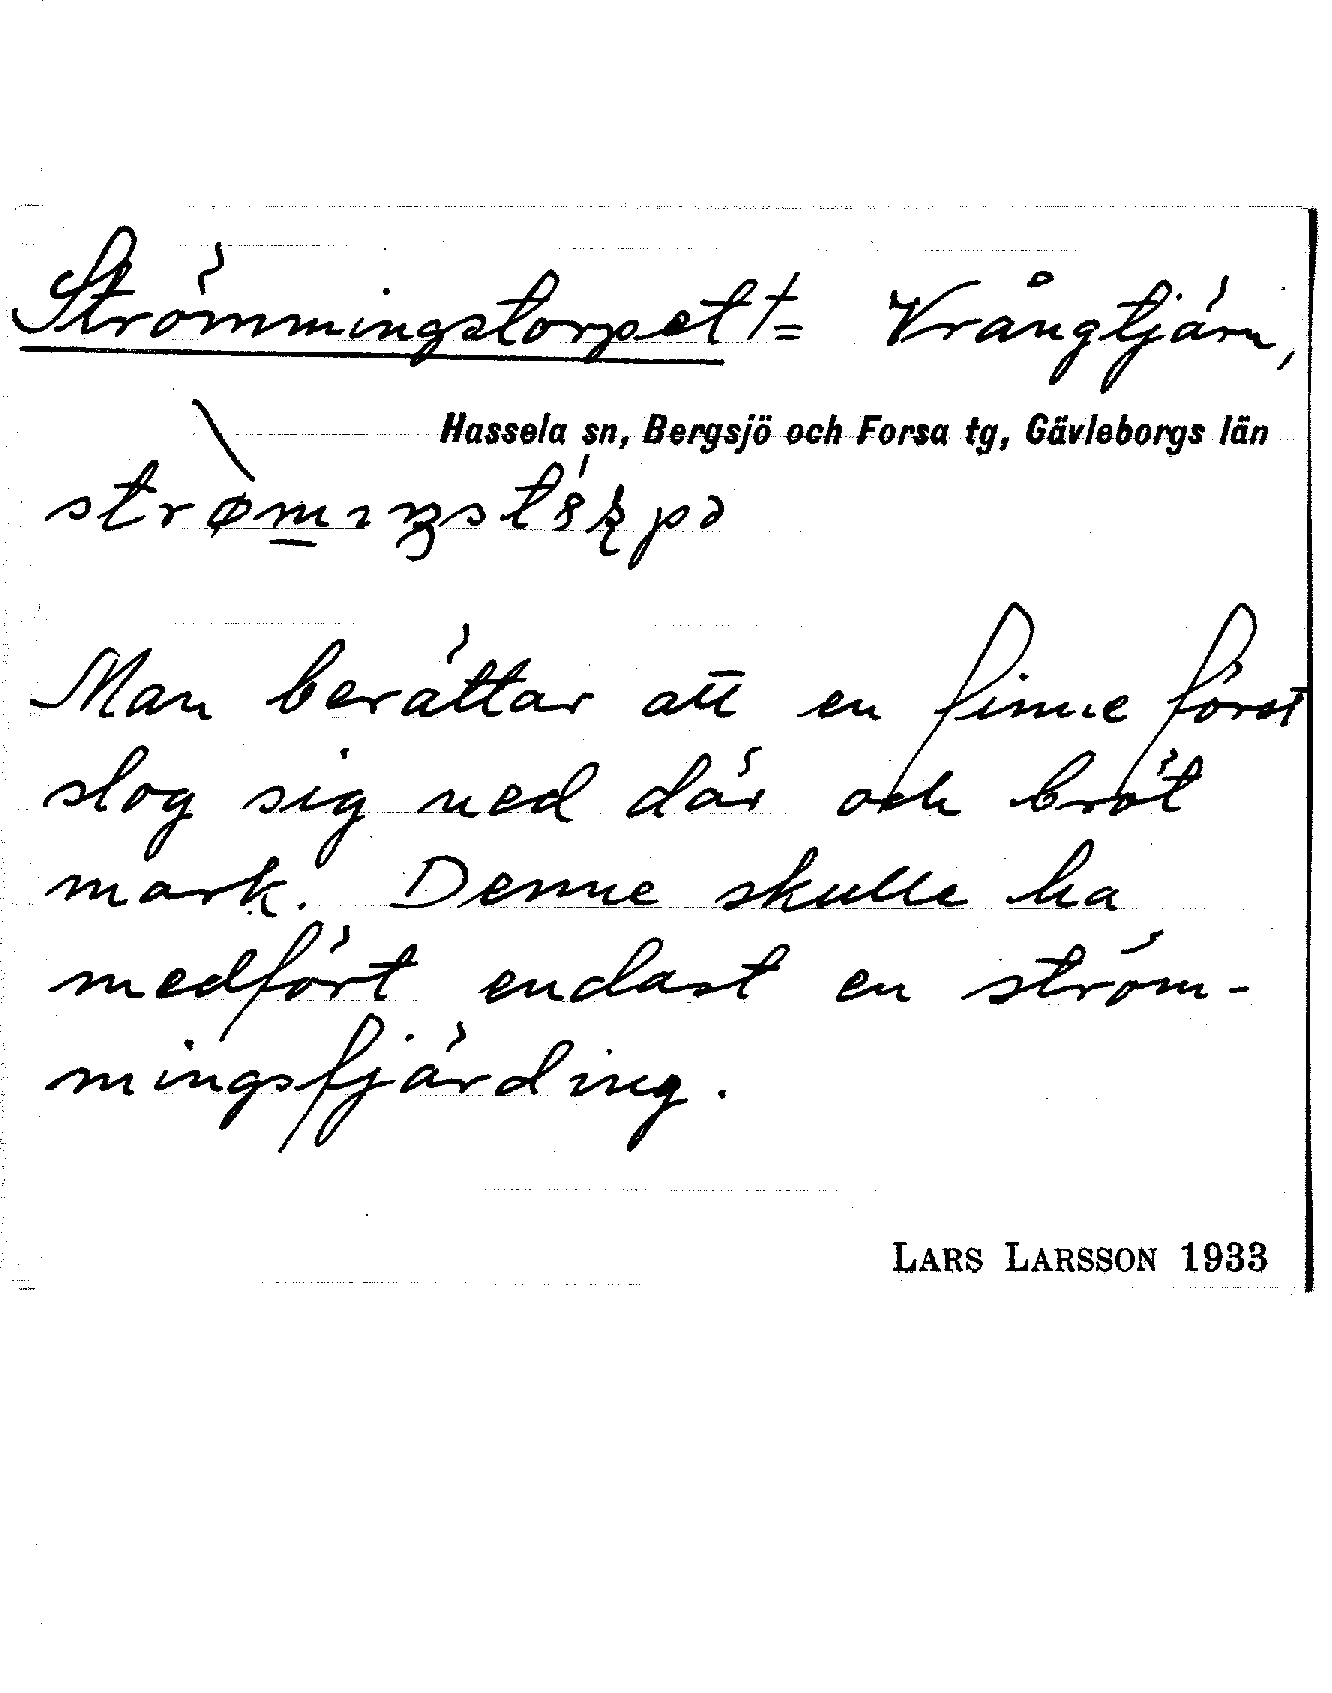 Strömmingstorpet † = Vrångtjärn,
Hassela sn, Bergsjö och Forsa tg, Gävleborgs län
Man berättar att en finne först
slog sig ned där och bröt
mark. Denne skulle ha
medfört endast en ström-
mingsfjärding.
LARS LARSSON 1933